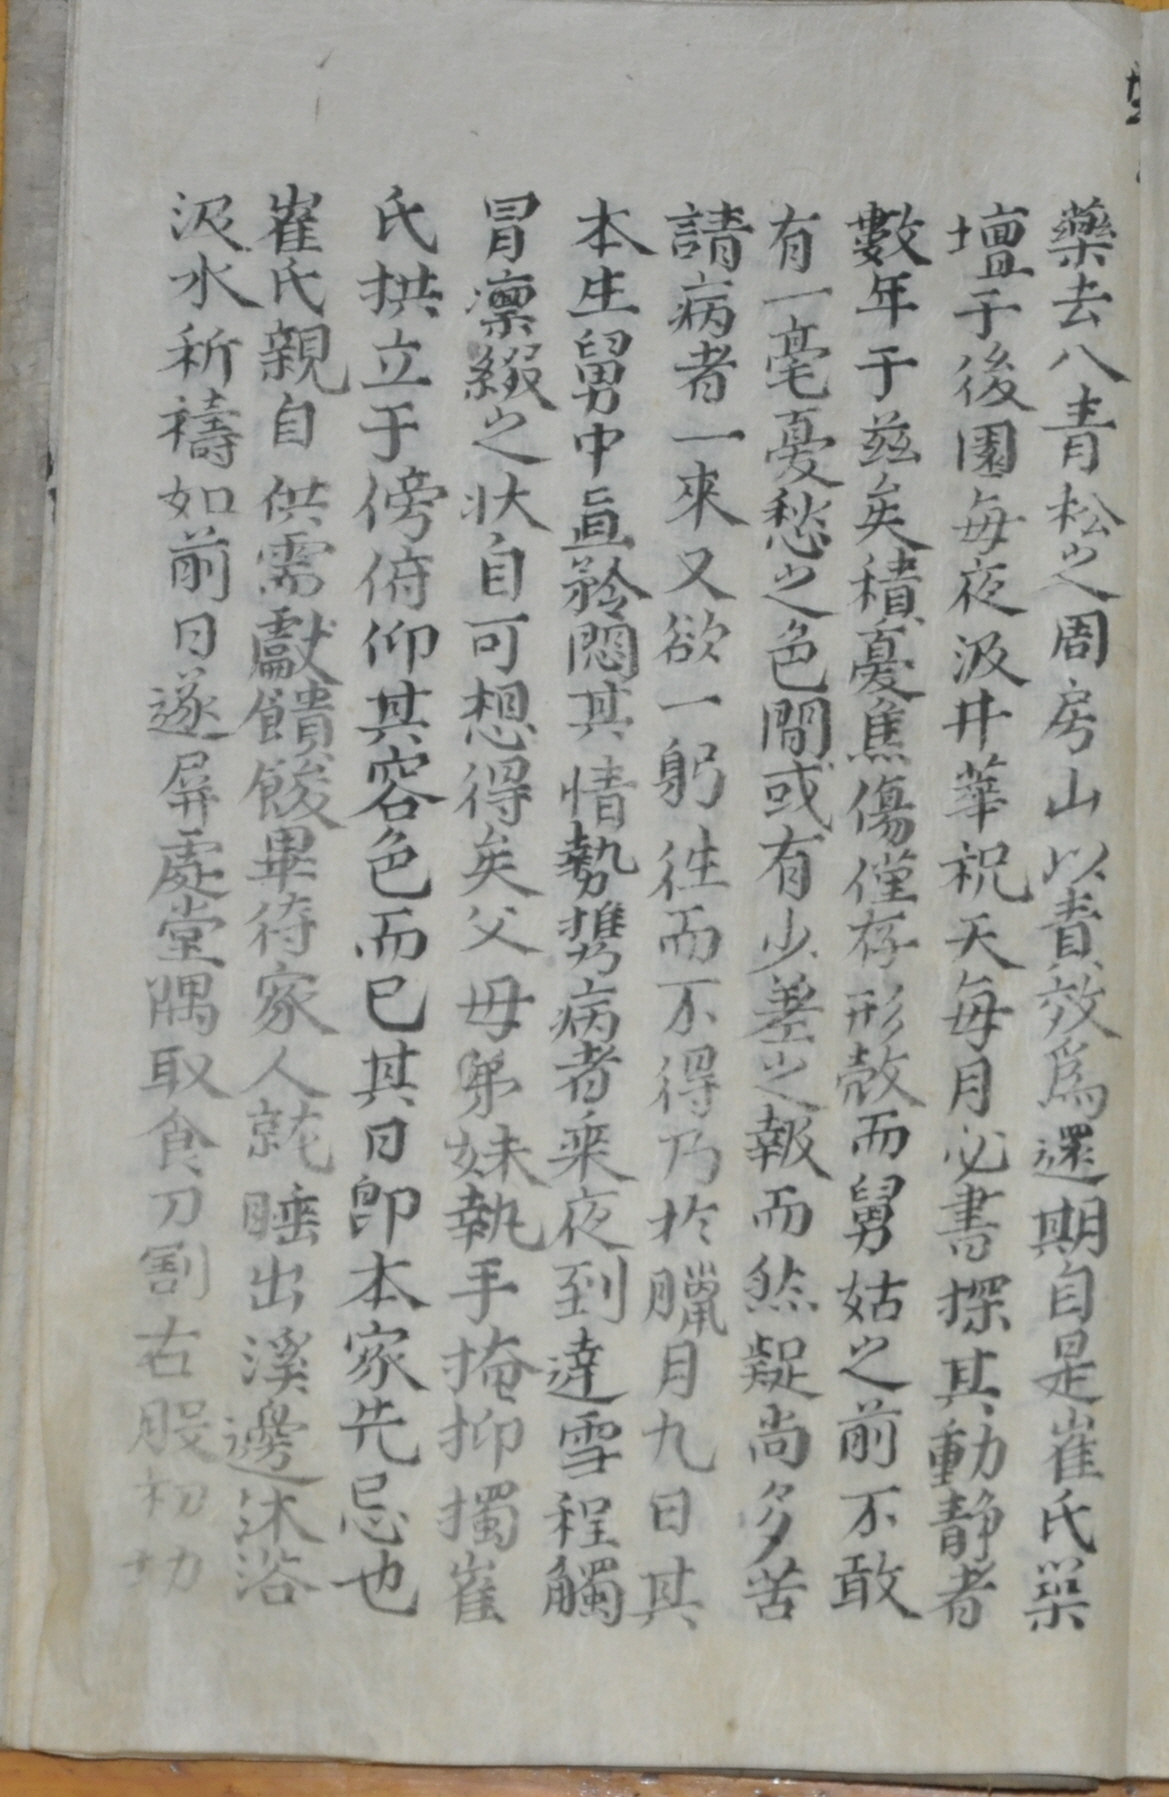 藥去八青松之周房山以責效爲還期自是崔氏築
壇于後園每夜汲井華祝天每月必書探其動静者
數年于玆矣積憂焦傷僅存形殼而舅姑之前不敢
有一毫憂愁之色間或有少差之報而然疑尚多苦
請病者一來又欲一躬徃而不得乃於臘月九日其
本生舅中直矜悶其情勢携病者乘夜到達雪程觸
冒凛綴之状自可想得矣父母弟妹執手掩抑獨崔
氏拱立于傍俯仰其容色而已其日卽本家先忌也
崔氏親自供需獻饋餕畢待家人就睡出溪邊沐浴
汲水祈禱如前日遂屏處堂隅取食刀割右股初